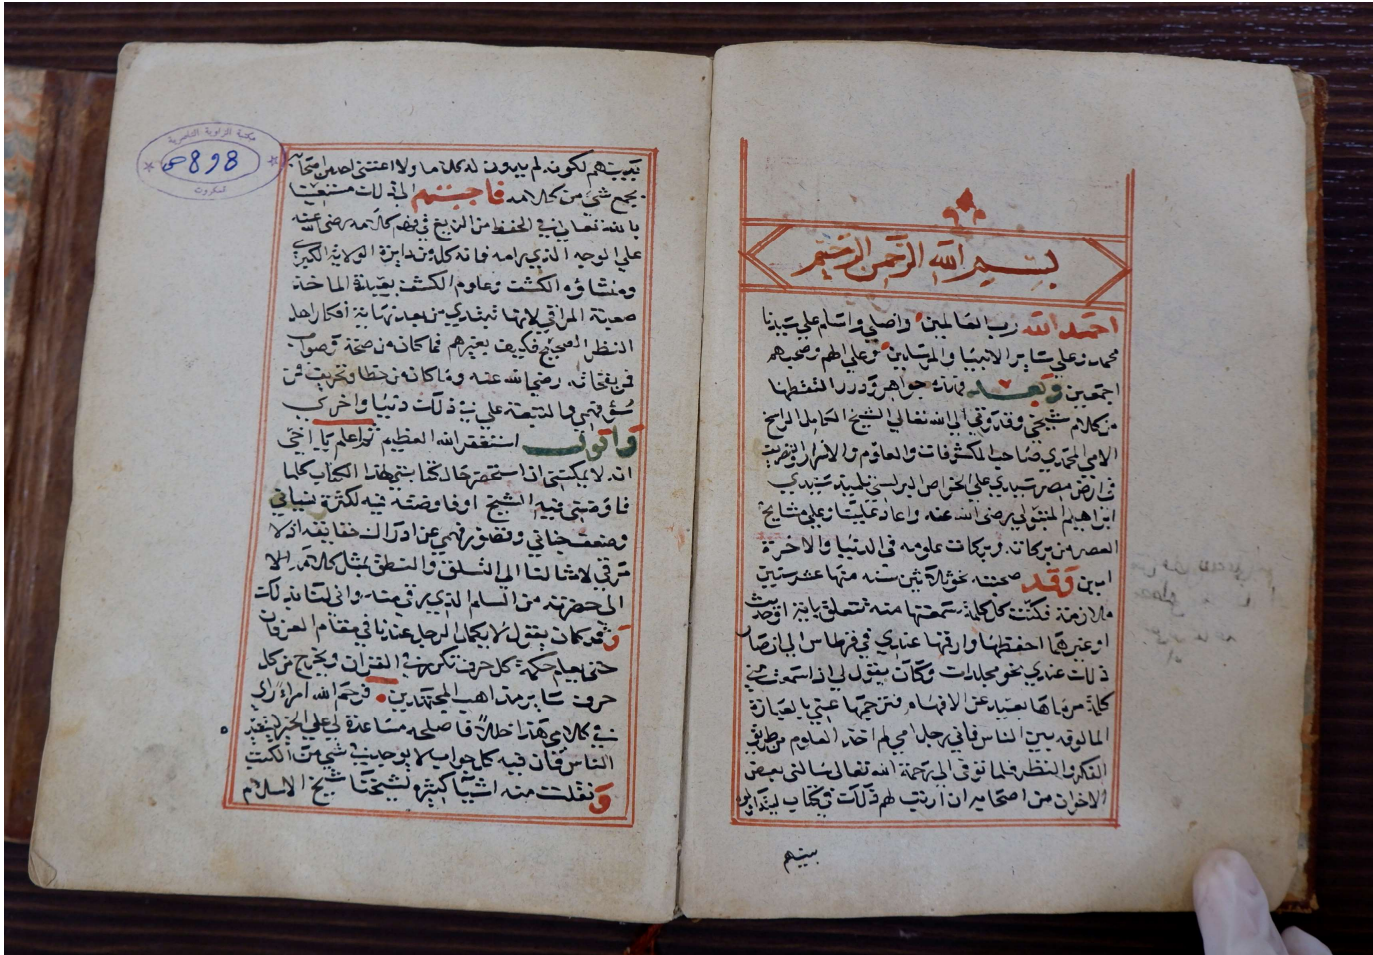 بسم الله الرحمن الرحيم
احمد الله رب العالمين واصلي واسلم علي سيدنا
محمد وعلي ساير الانبيا والمرسلين وعلي الهم وصحبهم
اجمعين وبعد فهذه جواهر ودرر التقطتها
من كلام شيخي وقدوتي الي الله تعالي الشيخ الكامل الراسخ
الامي المحمدي صاحب الكشوفات والعلوم والاسرار
في ارض مصر سيدي علي الخواص البرلسي تلميذ سيدي
ابراهيم المتبولي رضي الله عنه واعاد علينا وعلي مشايخ
العصر من بركاته وبركات علومه في الدنيا والاخرة
امين وقد صحبته نحو ثلاثين سنه منها عشر سنين
ملازمة فكنت كل كلمة سمعتها منه تتعلق باية او حديث
او غيرهما احفظها وارقمها عندي الي ان صار
ذلك عندي نحو مجلدات وكان يقول لي اذا سمعت مني
كلمة مرماها بعيد عن الافهام فترجمها عني بالعبارة
المالوفه بين الناس فاني رجل امي لم اخذ العلوم من طريق
الفكر والنظر فلما توفي الي رحمة الله تعالي سالني بعض
الاخوان من اصحابه ان ارتب لهم ذلك في كتاب
بينهم
لكونه لم يدون له كلاما ولا اعتني احد من اصحابه
بجمع شي من كلامه فاجبتهم الي ذلك مستعينا
بالله تعالي في الحفظ من الزيغ في فهم كلامه رضي الله عنه
علي الوجه الذي رامه فانه كله من دايرة الولاية الكبري
ومنشاؤه الكشف وعلوم الكشف بعيدة الماخذ
صعبة المراقي لانها تبتدي من بعد نهاية افكار اهل
النظر الصحيح فكيف بغيرهم فما كان من صحة وصواب
فمن نفحاته رضي الله عنه وما كان من خطا وتحريف فمن
سؤ فهمي والتبعة علي في ذلك دنيا واخري
واقول استغفر الله العظيم ثم اعلم يا اخي
انه لا يمكنني ان استحضر حال كتابتي هذا الكتاب كلما
فاوضني فيه الشيخ او فاوضته فيه لكثرة نسياني
وضعف جناني وقصور فهمي عن ادراك حقايقه اذ لا
مرقي لامثالنا الي التسلق والنطق بمثل كلامه الا
الي حضرته من السلم الذي يرقي منه واني لنا بذلك
وقد كان يقول لا يكمل الرجل عندنا في مقام العرفان
حتي يعلم حكمة كل حرف تكرر في القران ويخرج من كل
حرف ساير مذاهب المجتهدين فرحم الله امراء راي
في كلامي هذا خللا فاصلحه مساعدة لي علي الخير
الناس فان فيه كل جواب لا يوجد في شي من الكتب
ونقلت منه اشيآ كثيره لشيخنا شيخ الاسلام
مكتبة الزاوية الناصرية
898
تمكروت